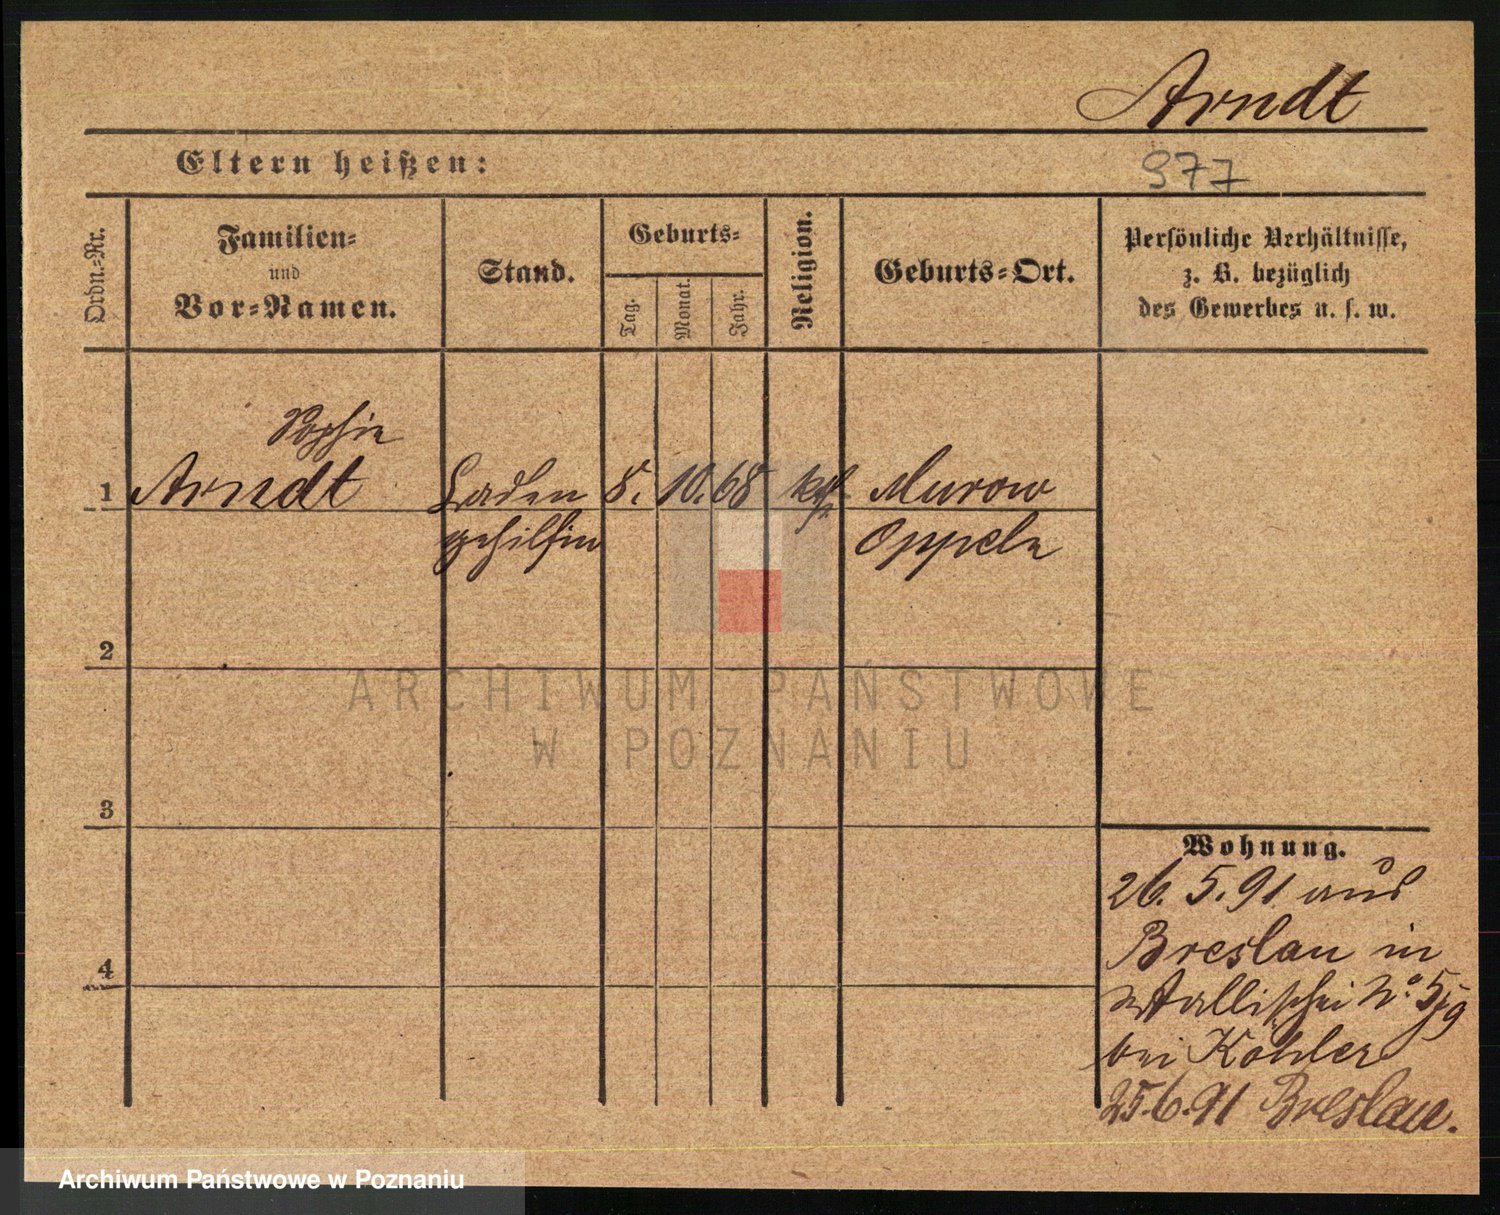 Arndt
Eltern heißen:
977
Ordn.-Nr.
Familien-
und
Vor-Namen.
Stand.
Geburts-
Tag.
Monat.
Jahr.
Religion.
Geburts-Ort.
Persönliche Verhältnisse,
z. B. bezüglich
des Gewerbes u. s. w.
Sophie
1 Arndt Laden 8. 10. 68 kth. Murow
gehilfin Oppeln
2
ARCHIWUM PAŃSTWOWE
W POZNANIU
3
Wohnung.
26. 5. 91 aus
Breslau in
4
Wallischei No. 5/9
bei Köhler
25. 6. 91 Breslau.
Archiwum Państwowe w Poznaniu